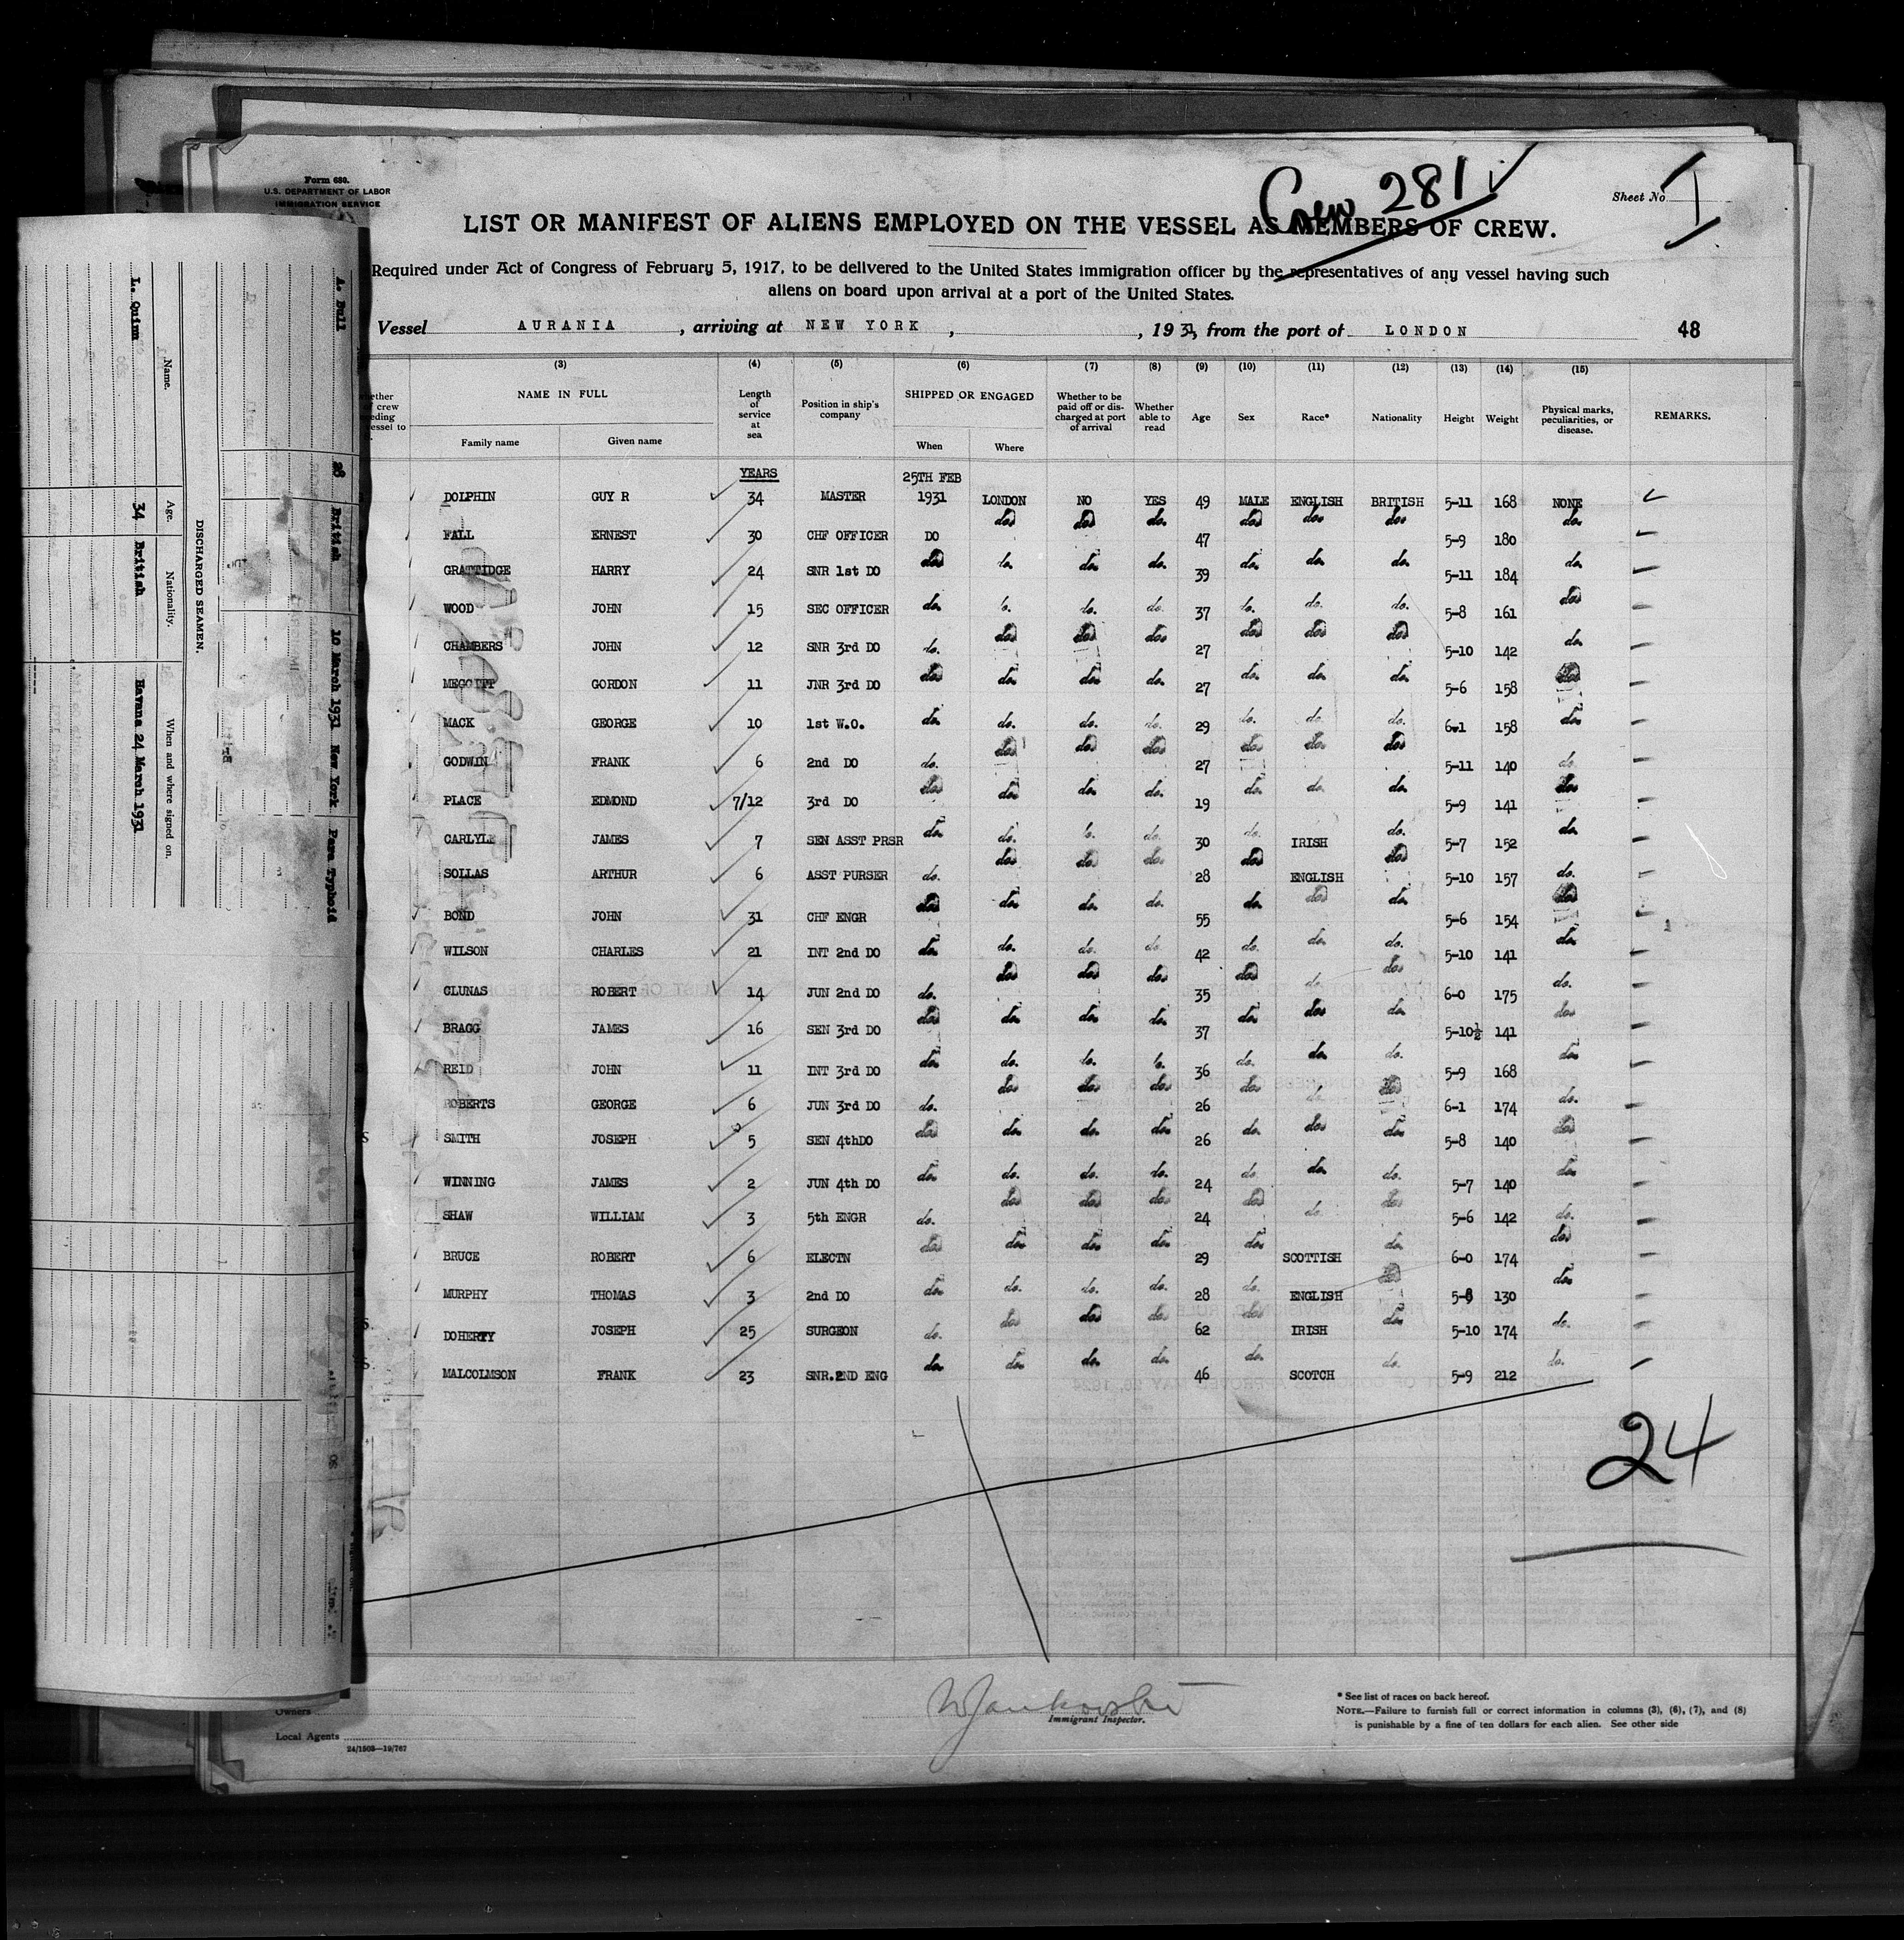 Form 680.
U.S. DEPARTMENT OF LABOR
IMMIGRATION SERVICE
Crew 281
Sheet No. 1
LIST OR MANIFEST OF ALIENS EMPLOYED ON THE VESSEL AS MEMBERS OF CREW.
Required under Act of Congress of February 5, 1917, to be delivered to the United States immigration officer by the representatives of any vessel having such
aliens on board upon arrival at a port of the United States.
Vessel AURANIA, arriving at NEW YORK, , 1931, from the port of LONDON 48
(3) (4) (5) (6) (7) (8) (9) (10) (11) (12) (13) (14) (15)
NAME IN FULL Length of service at sea Position in ship's company SHIPPED OR ENGAGED Whether to be paid off or discharged at port of arrival Whether able to read Age Sex Race* Nationality Height Weight Physical marks, peculiarities, or disease. REMARKS.
Family name Given name When Where
YEARS 25TH FEB
DOLPHIN GUY R 34 MASTER 1931 LONDON NO YES 49 MALE ENGLISH BRITISH 5-11 168 NONE
FALL ERNEST 30 CHF OFFICER DO do. do. do. 47 do. do. do. 5-9 180 do.
GRATTIDGE HARRY 24 SNR 1st DO do. do. do. do. 39 do. do. do. 5-11 184 do.
WOOD JOHN 15 SEC OFFICER do. do. do. do. 37 do. do. do. 5-8 161 do.
CHAMBERS JOHN 12 SNR 3rd DO do. do. do. do. 27 do. do. do. 5-10 142 do.
GORDON 11 JNR 3rd DO do. do. do. do. 27 do. do. do. 5-6 158 do.
MACK GEORGE 10 1st W.O. do. do. do. do. 29 do. do. do. 6-1 158 do.
GODWIN FRANK 6 2nd DO do. do. do. do. 27 do. do. do. 5-11 140 do.
PLACE EDMOND 7/12 3rd DO do. do. do. do. 19 do. do. do. 5-9 141 do.
CARLYLE JAMES 7 SEN ASST PRSR do. do. do. do. 30 do. IRISH do. 5-7 152 do.
SOLLAS ARTHUR 6 ASST PURSER do. do. do. do. 28 do. ENGLISH do. 5-10 157 do.
BOND JOHN 31 CHF ENGR do. do. do. do. 55 do. do. do. 5-6 154 do.
WILSON CHARLES 21 INT 2nd DO do. do. do. do. 42 do. do. do. 5-10 141 do.
CLUNAS ROBERT 14 JUN 2nd DO do. do. do. do. 35 do. do. do. 6-0 175 do.
BRAGG JAMES 16 SEN 3rd DO do. do. do. do. 37 do. do. do. 5-10½ 141 do.
REID JOHN 11 INT 3rd DO do. do. do. do. 36 do. do. do. 5-9 168 do.
ROBERTS GEORGE 6 JUN 3rd DO do. do. do. do. 26 do. do. do. 6-1 174 do.
SMITH JOSEPH 5 SEN 4thDO do. do. do. do. 26 do. do. do. 5-8 140 do.
WINNING JAMES 2 JUN 4th DO do. do. do. do. 24 do. do. do. 5-7 140 do.
SHAW WILLIAM 3 5th ENGR do. do. do. do. 24 do. do. do. 5-6 142 do.
BRUCE ROBERT 6 ELECTN do. do. do. do. 29 do. SCOTTISH do. 6-0 174 do.
MURPHY THOMAS 3 2nd DO do. do. do. do. 28 do. ENGLISH do. 5-8 130 do.
DOHERTY JOSEPH 25 SURGEON do. do. do. do. 62 do. IRISH do. 5-10 174 do.
MALCOLMSON FRANK 23 SNR.2ND ENG do. do. do. do. 46 do. SCOTCH do. 5-9 212 do.
24
W Jankowski
Immigrant Inspector.
* See list of races on back hereof.
NOTE.—Failure to furnish full or correct information in columns (3), (6), (7), and (8)
is punishable by a fine of ten dollars for each alien. See other side
Owners
Local Agents
24/1503—19/767
DISCHARGED SEAMEN.
Name. Age. Nationality. When and where signed on.
L. Quinn 34 British Havana 24 March 1931
A. Bull 28 British 10 March 1931 New York Para Typhoid